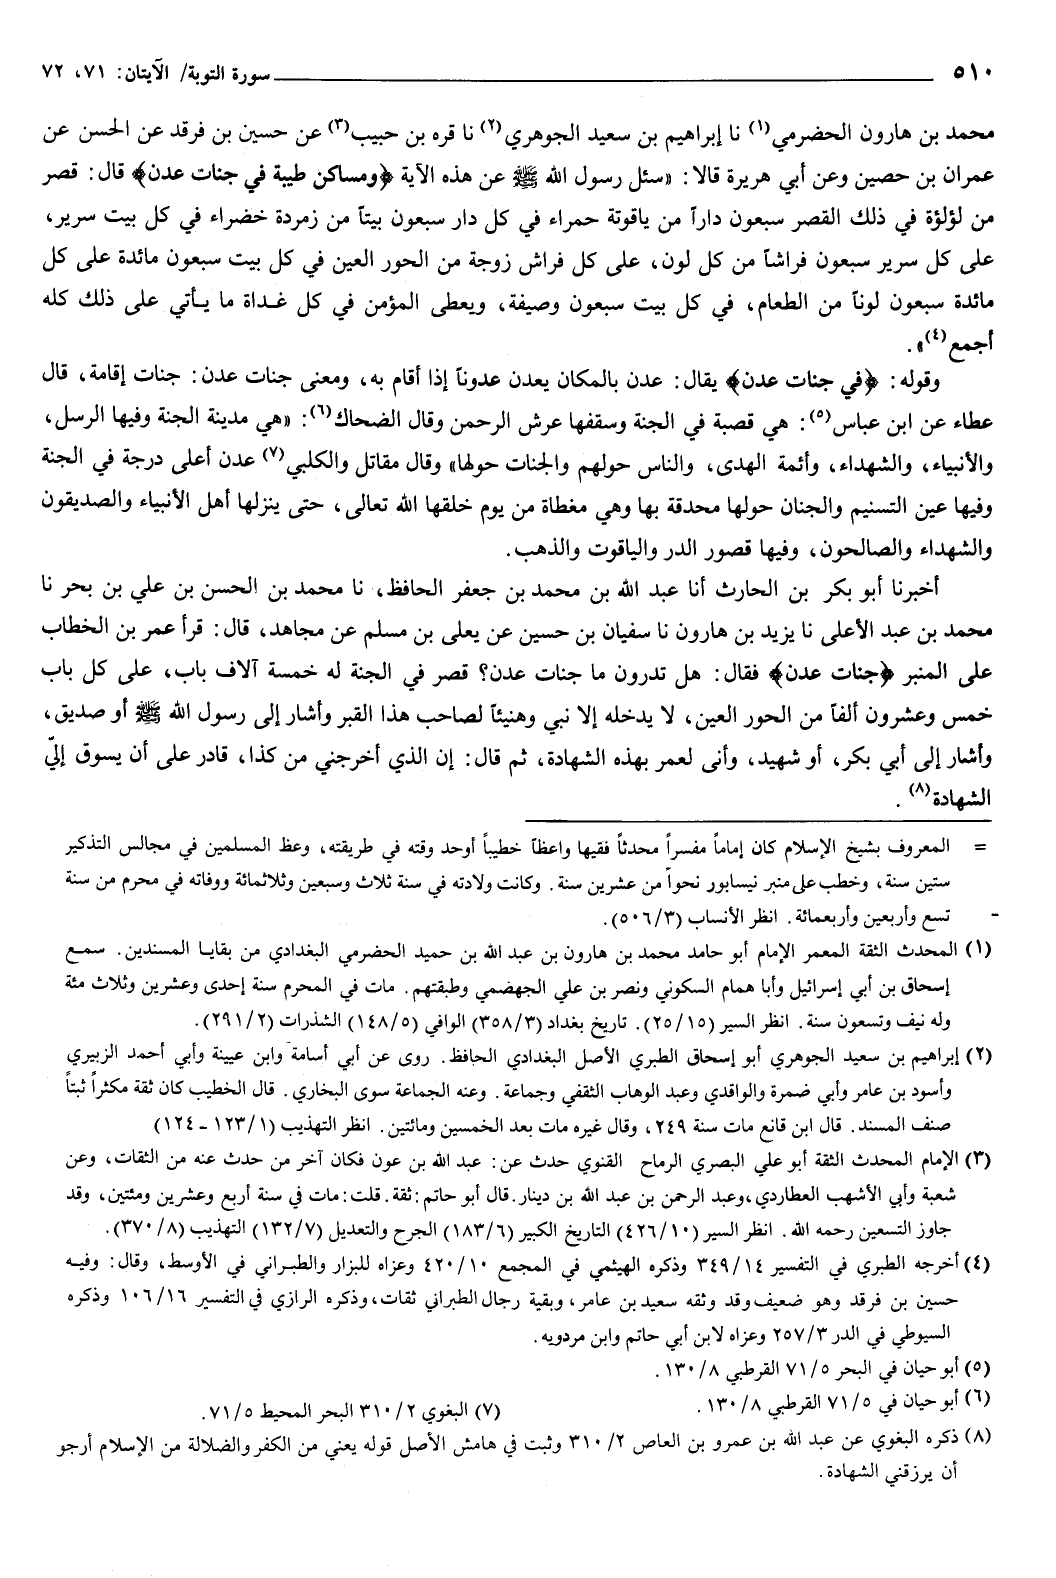 ٥١٠ سورة التوبة/ الآيتان: ٧١، ٧٢
محمد بن هارون الحضرمي(١) نا إبراهيم بن سعيد الجوهري(٢) نا قره بن حبيب(٣) عن حسين بن فرقد عن الحسن عن
عمران بن حصين وعن أبي هريرة قالا: «سئل رسول الله ﷺ عن هذه الآية ﴿ومساكن طيبة في جنات عدن﴾ قال: قصر
من لؤلؤة في ذلك القصر سبعون داراً من ياقوتة حمراء في كل دار سبعون بيتاً من زمردة خضراء في كل بيت سرير،
على كل سرير سبعون فراشاً من كل لون، على كل فراش زوجة من الحور العين في كل بيت سبعون مائدة على كل
مائدة سبعون لوناً من الطعام، في كل بيت سبعون وصيفة، ويعطى المؤمن في كل غداة ما يأتي على ذلك كله
أجمع(٤)».
وقوله: ﴿في جنات عدن﴾ يقال: عدن بالمكان يعدن عدوناً إذا أقام به، ومعنى جنات عدن: جنات إقامة، قال
عطاء عن ابن عباس(٥): هي قصبة في الجنة وسقفها عرش الرحمن وقال الضحاك(٦): «هي مدينة الجنة وفيها الرسل،
والأنبياء، والشهداء، وأئمة الهدى، والناس حولهم والجنات حولها» وقال مقاتل والكلبي(٧) عدن أعلى درجة في الجنة
وفيها عين التسنيم والجنان حولها محدقة بها وهي مغطاة من يوم خلقها الله تعالى، حتى ينزلها أهل الأنبياء والصديقون
والشهداء والصالحون، وفيها قصور الدر والياقوت والذهب.
أخبرنا أبو بكر بن الحارث أنا عبد الله بن محمد بن جعفر الحافظ، نا محمد بن الحسن بن علي بن بحر نا
محمد بن عبد الأعلى نا يزيد بن هارون نا سفيان بن حسين عن يعلى بن مسلم عن مجاهد، قال: قرأ عمر بن الخطاب
على المنبر ﴿جنات عدن﴾ فقال: هل تدرون ما جنات عدن؟ قصر في الجنة له خمسة آلاف باب، على كل باب
خمس وعشرون ألفاً من الحور العين، لا يدخله إلا نبي وهنيئاً لصاحب هذا القبر وأشار إلى رسول الله ﷺ أو صديق،
وأشار إلى أبي بكر، أو شهيد، وأنى لعمر بهذه الشهادة، ثم قال: إن الذي أخرجني من كذا، قادر على أن يسوق إليّ
الشهادة(٨).
= المعروف بشيخ الإسلام كان إماماً مفسراً محدثاً فقيها واعظاً خطيباً أوحد وقته في طريقته، وعظ المسلمين في مجالس التذكير
ستين سنة، وخطب على منبر نيسابور نحواً من عشرين سنة. وكانت ولادته في سنة ثلاث وسبعين وثلاثمائة ووفاته في محرم من سنة
تسع وأربعين وأربعمائة. انظر الأنساب (٣/٥٠٦).
(١) المحدث الثقة المعمر الإمام أبو حامد محمد بن هارون بن عبد الله بن حميد الحضرمي البغدادي من بقايا المسندين. سمع
إسحاق بن أبي إسرائيل وأبا همام السكوني ونصر بن علي الجهضمي وطبقتهم. مات في المحرم سنة إحدى وعشرين وثلاث مئة
وله نيف وتسعون سنة. انظر السير (٢٥/١٥). تاريخ بغداد (٣٥٨/٣) الوافي (١٤٨/٥) الشذرات (٢٩١/٢).
(٢) إبراهيم بن سعيد الجوهري أبو إسحاق الطبري الأصل البغدادي الحافظ. روى عن أبي أسامة وابن عيينة وأبي أحمد الزبيري
وأسود بن عامر وأبي ضمرة والواقدي وعبد الوهاب الثقفي وجماعة. وعنه الجماعة سوى البخاري. قال الخطيب كان ثقة مكثراً ثبتاً
صنف المسند. قال ابن قانع مات سنة ٢٤٩، وقال غيره مات بعد الخمسين ومائتين. انظر التهذيب (١٢٣/١ - ١٢٤)
(٣) الإمام المحدث الثقة أبو علي البصري الرماح القنوي حدث عن: عبد الله بن عون فكان آخر من حدث عنه من الثقات، وعن
شعبة وأبي الأشهب العطاردي، وعبد الرحمن بن عبد الله بن دينار. قال أبو حاتم: ثقة. قلت: مات في سنة أربع وعشرين ومئتين، وقد
جاوز التسعين رحمه الله. انظر السير (٤٢٦/١٠) التاريخ الكبير (١٨٣/٦) الجرح والتعديل (١٣٢/٧) التهذيب (٣٧٠/٨).
(٤) أخرجه الطبري في التفسير ٣٤٩/١٤ وذكره الهيثمي في المجمع ٤٢٠/١٠ وعزاه للبزار والطبراني في الأوسط، وقال: وفيه
حسين بن فرقد وهو ضعيف وقد وثقه سعيد بن عامر، وبقية رجال الطبراني ثقات، وذكره الرازي في التفسير ١٠٦/١٦ وذكره
السيوطي في الدر ٢٥٧/٣ وعزاه لابن أبي حاتم وابن مردويه.
(٥) أبو حيان في البحر ٧١/٥ القرطبي ١٣٠/٨.
(٦) أبو حيان في ٧١/٥ القرطبي ١٣٠/٨. (٧) البغوي ٣١٠/٢ البحر المحيط ٧١/٥.
(٨) ذكره البغوي عن عبد الله بن عمرو بن العاص ٣١٠/٢ وثبت في هامش الأصل قوله يعني من الكفر والضلالة من الإسلام أرجو
أن يرزقني الشهادة.